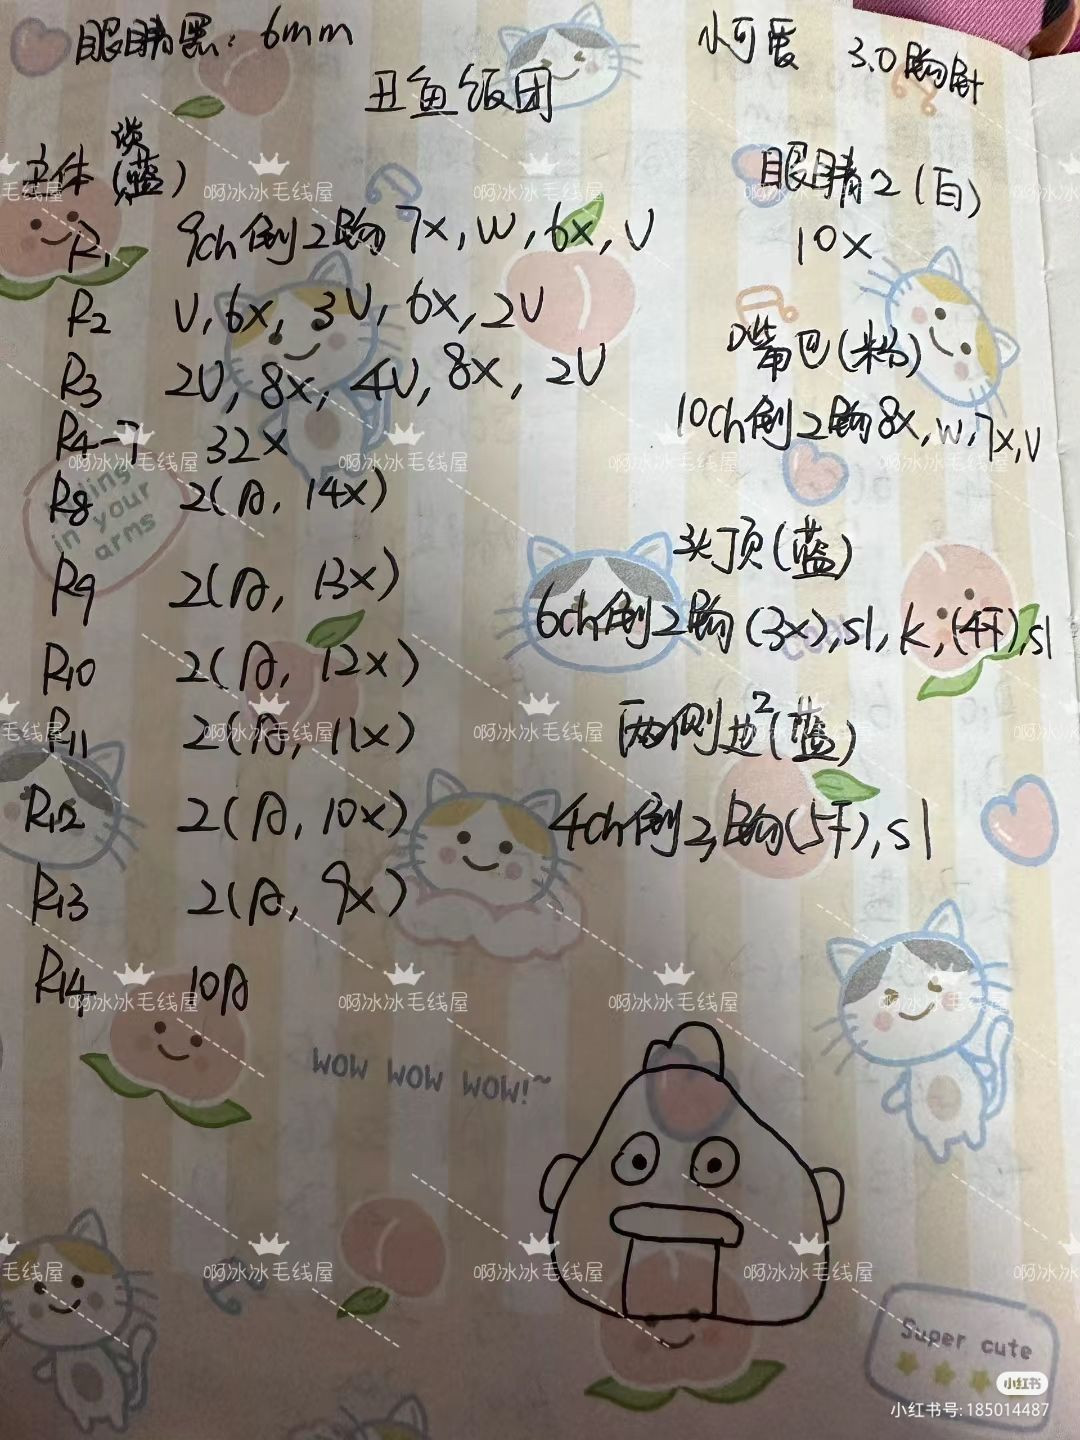 眼睛黑：6mm
小可爱 3.0钩针
丑鱼饭团
主体（淡蓝）
R1 9ch倒2钩7x, W, 6x, V
R2 V, 6x, 3V, 6x, 2V
R3 2V, 8x, 4V, 8x, 2V
R4-7 32x
R8 2(A, 14x)
R9 2(A, 13x)
R10 2(A, 12x)
R11 2(A, 11x)
R12 2(A, 10x)
R13 2(A, 9x)
R14 10A
眼睛2（白）
10x
嘴巴（粉）
10ch倒2钩8x, W, 7x, V
头顶（蓝）
6ch倒2钩(3x), sl, k, (4T), sl
两侧边2（蓝）
4ch倒2钩(5T), sl
ling
your
in
arms
WOW WOW WOW!~
Super cute
啊冰冰毛线屋
小红书
小红书号: 185014487